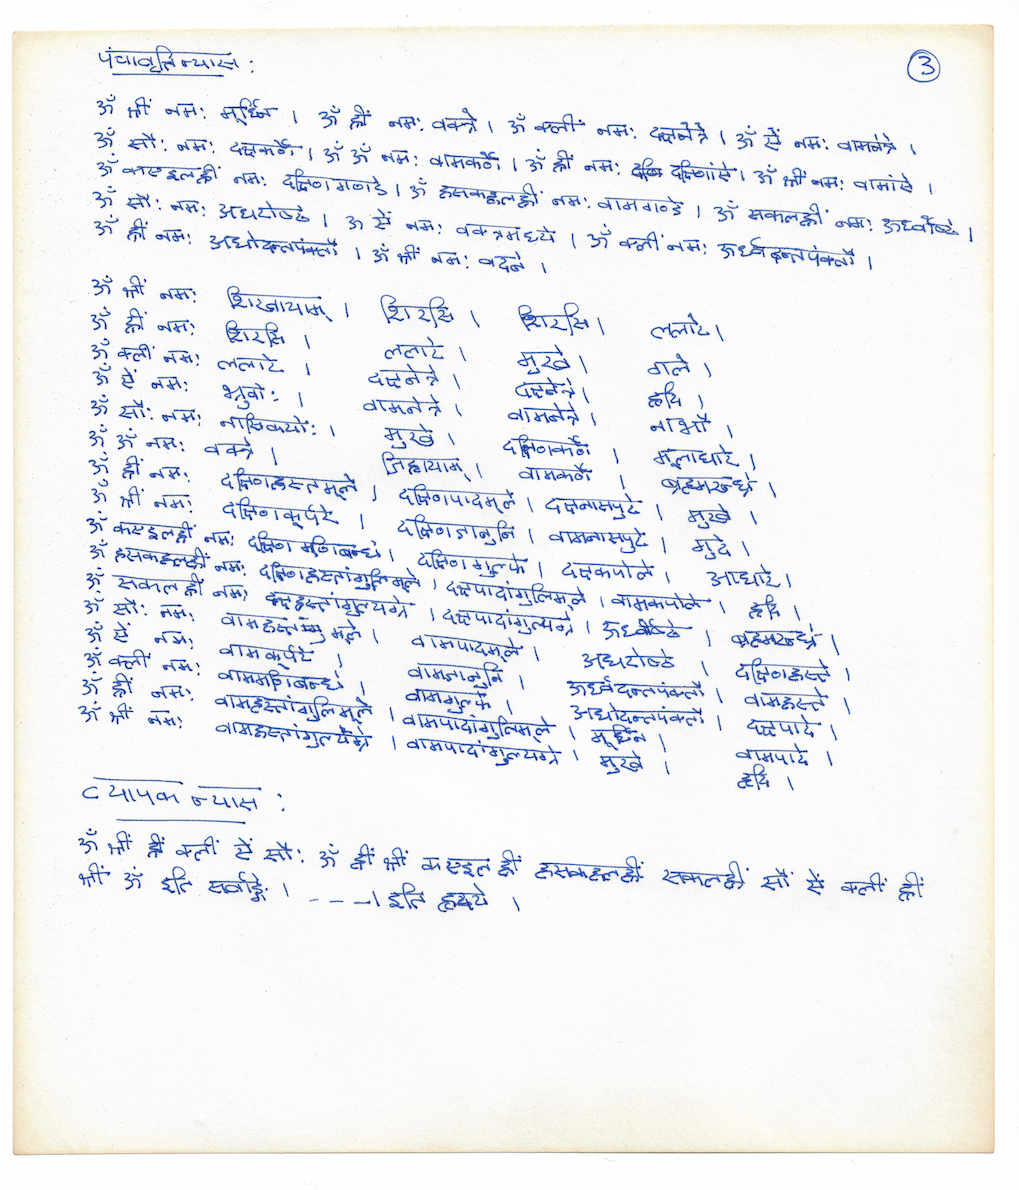 पंचावृत्ति न्यास : ③
ॐ श्रीं नमः मूर्ध्नि । ॐ ह्रीं नमः वक्त्रे । ॐ क्लीं नमः दक्षनेत्रे । ॐ ऐं नमः वामनेत्रे ।
ॐ सौः नमः दक्षकर्णे । ॐ ॐ नमः वामकर्णे । ॐ ह्रीं नमः दक्षिणांसे । ॐ श्रीं नमः वामांसे ।
ॐ कएइलह्रीं नमः दक्षिणगण्डे । ॐ हसकहलह्रीं नमः वामगण्डे । ॐ सकलह्रीं नमः ऊर्ध्वोष्ठे ।
ॐ सौः नमः अधरोष्ठे । ॐ ऐं नमः वक्त्रमध्ये । ॐ क्लीं नमः ऊर्ध्वदन्तपंक्तौ ।
ॐ ह्रीं नमः अधोदन्तपंक्तौ । ॐ श्रीं नमः वदने ।
ॐ श्रीं नमः शिखायाम् । शिरसि । शिरसि । ललाटे ।
ॐ ह्रीं नमः शिरसि । ललाटे । मुखे । गले ।
ॐ क्लीं नमः ललाटे । दक्षनेत्रे । दक्षनेत्रे । हृदि ।
ॐ ऐं नमः भ्रुवोः । वामनेत्रे । वामनेत्रे । नाभौ ।
ॐ सौः नमः नासिकयोः । मुखे । दक्षिणकर्णे । मूलाधारे ।
ॐ ॐ नमः वक्त्रे । जिह्वायाम् । वामकर्णे । ब्रह्मरन्ध्रे ।
ॐ ह्रीं नमः दक्षिणहस्तमूले । दक्षिणपादमूले । दक्षनासपुटे । मुखे ।
ॐ श्रीं नमः दक्षिणकूर्परे । दक्षिणजानुनि । वामनासपुटे । गुदे ।
ॐ कएइलह्रीं नमः दक्षिणमणिबन्धे । दक्षिणगुल्फे । दक्षकपोले । आधारे ।
ॐ हसकहलह्रीं नमः दक्षिणहस्तांगुलिमूले । दक्षपादांगुलिमूले । वामकपोले । हृदि ।
ॐ सकलह्रीं नमः दक्षहस्तांगुल्यग्रे । दक्षपादांगुल्यग्रे । ऊर्ध्वोष्ठे । ब्रह्मरन्ध्रे ।
ॐ सौः नमः वामहस्तमूले । वामपादमूले । अधरोष्ठे । दक्षिणहस्ते ।
ॐ ऐं नमः वामकूर्परे । वामजानुनि । ऊर्ध्वदन्तपंक्तौ । वामहस्ते ।
ॐ क्लीं नमः वाममणिबन्धे । वामगुल्फे । अधोदन्तपंक्तौ । दक्षपादे ।
ॐ ह्रीं नमः वामहस्तांगुलिमूले । वामपादांगुलिमूले । मूर्ध्नि । वामपादे ।
ॐ श्रीं नमः वामहस्तांगुल्यग्रे । वामपादांगुल्यग्रे । मुखे । हृदि ।
व्यापक न्यास :
ॐ श्रीं ह्रीं क्लीं ऐं सौः ॐ ह्रीं श्रीं कएइल ह्रीं हसकहलह्रीं सकलह्रीं सौं ऐं क्लीं ह्रीं
श्रीं ॐ इति सर्वाङ्गे । ----। इति हृदये ।